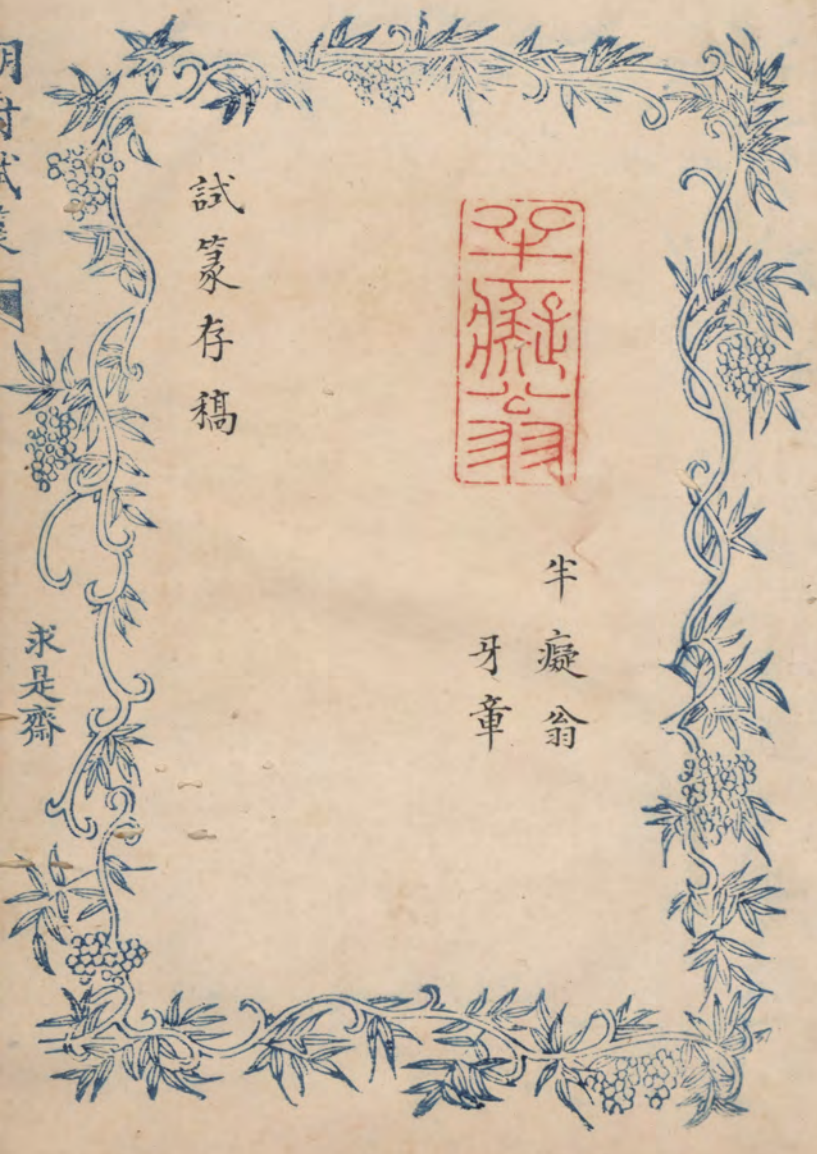 半癡翁
半癡翁
牙章
試篆存稿
求是齋